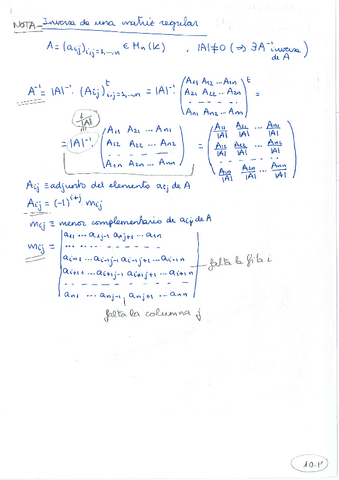 NOTA - Inversa de una matriz regular
A = (aij)i,j=1,...,n ∈ Mn(K) , |A| ≠ 0 (⇒ ∃ A⁻¹ inversa de A)
A⁻¹ = |A|⁻¹ · (Aij)ᵗi,j=1,...,n = |A|⁻¹ (A11 A12 ... A1n
A21 A22 ... A2n
- - - - -
An1 An2 ... Ann)ᵗ =
1/|A|
= |A|⁻¹ (A11 A21 ... An1
A12 A22 ... An2
- - - - -
A1n A2n ... Ann) = (A11/|A| A21/|A| ... An1/|A|
A12/|A| A22/|A| ... An2/|A|
- - - - -
A1n/|A| A2n/|A| ... Ann/|A|)
Aij ≡ adjunto del elemento aij de A
Aij = (-1)^(i+j) mij
mij ≡ menor complementario de aij de A
mij = |a11 ... a1j-1 a1j+1 ... a1n
- - - - -
ai-11 ... ai-1j-1 ai-1j+1 ... ai-1n
ai+11 ... ai+1j-1 ai+1j+1 ... ai+1n
- - - - -
an1 ... anj-1 anj+1 ... ann|
falta la fila i
falta la columna j
10-1'